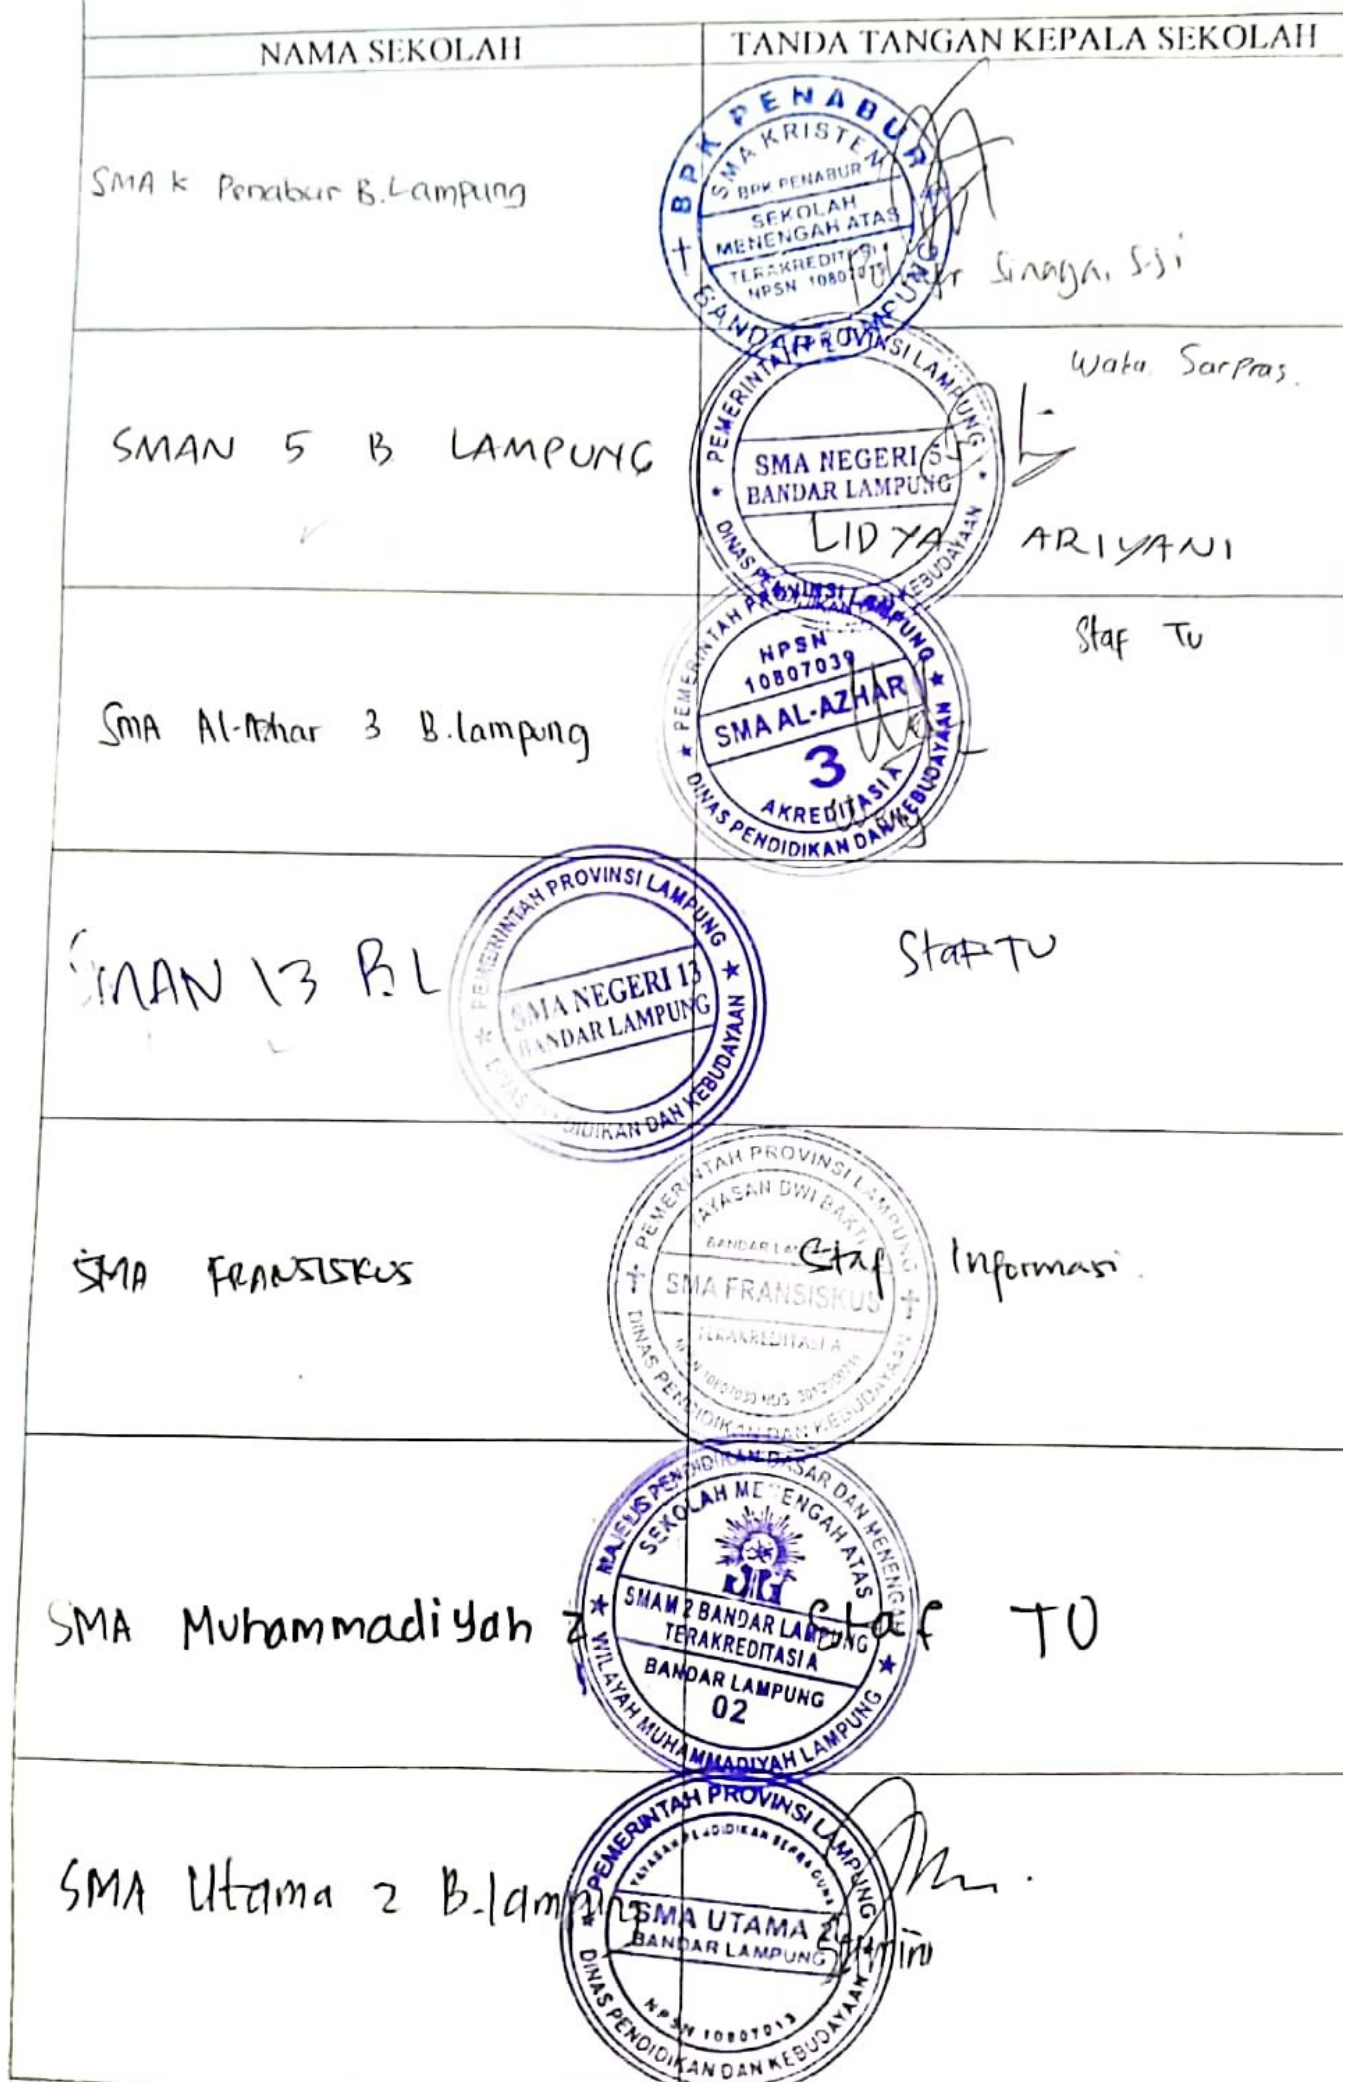 NAMA SEKOLAH
TANDA TANGAN KEPALA SEKOLAH
SMA K Penabur B.Lampung
BPK PENABUR
BANDAR LAMPUNG
SMA KRISTEN
BPK PENABUR
SEKOLAH
MENENGAH ATAS
TERAKREDITASI
NPSN
Sinaga, S.Si
SMAN 5 B LAMPUNG
PEMERINTAH PROVINSI LAMPUNG
SMA NEGERI 5
BANDAR LAMPUNG
DINAS PENDIDIKAN DAN KEBUDAYAAN
Waka Sarpras.
LIDYA ARIYANI
SMA Al-Azhar 3 B.lampung
PEMERINTAH PROVINSI LAMPUNG
NPSN
10807039
SMA AL-AZHAR
3
AKREDITASI A
DINAS PENDIDIKAN DAN KEBUDAYAAN
Staf TU
SMAN 13 B.L
PEMERINTAH PROVINSI LAMPUNG
SMA NEGERI 13
BANDAR LAMPUNG
DINAS PENDIDIKAN DAN KEBUDAYAAN
Staf TU
SMA FRANSISKUS
PEMERINTAH PROVINSI LAMPUNG
YAYASAN DWI BAKTI
BANDAR LAMPUNG
SMA FRANSISKUS
TERAKREDITASI A
DINAS PENDIDIKAN DAN KEBUDAYAAN
Staf Informasi.
SMA Muhammadiyah 2
MAJELIS PENDIDIKAN DASAR DAN MENENGAH
SEKOLAH MENENGAH ATAS
SMAM 2 BANDAR LAMPUNG
TERAKREDITASI A
BANDAR LAMPUNG
02
WILAYAH MUHAMMADIYAH LAMPUNG
Staf TU
SMA Utama 2 B.lampung
PEMERINTAH PROVINSI LAMPUNG
YAYASAN PENDIDIKAN SERBA GUNA
SMA UTAMA 2
BANDAR LAMPUNG
NPSN 10807013
DINAS PENDIDIKAN DAN KEBUDAYAAN